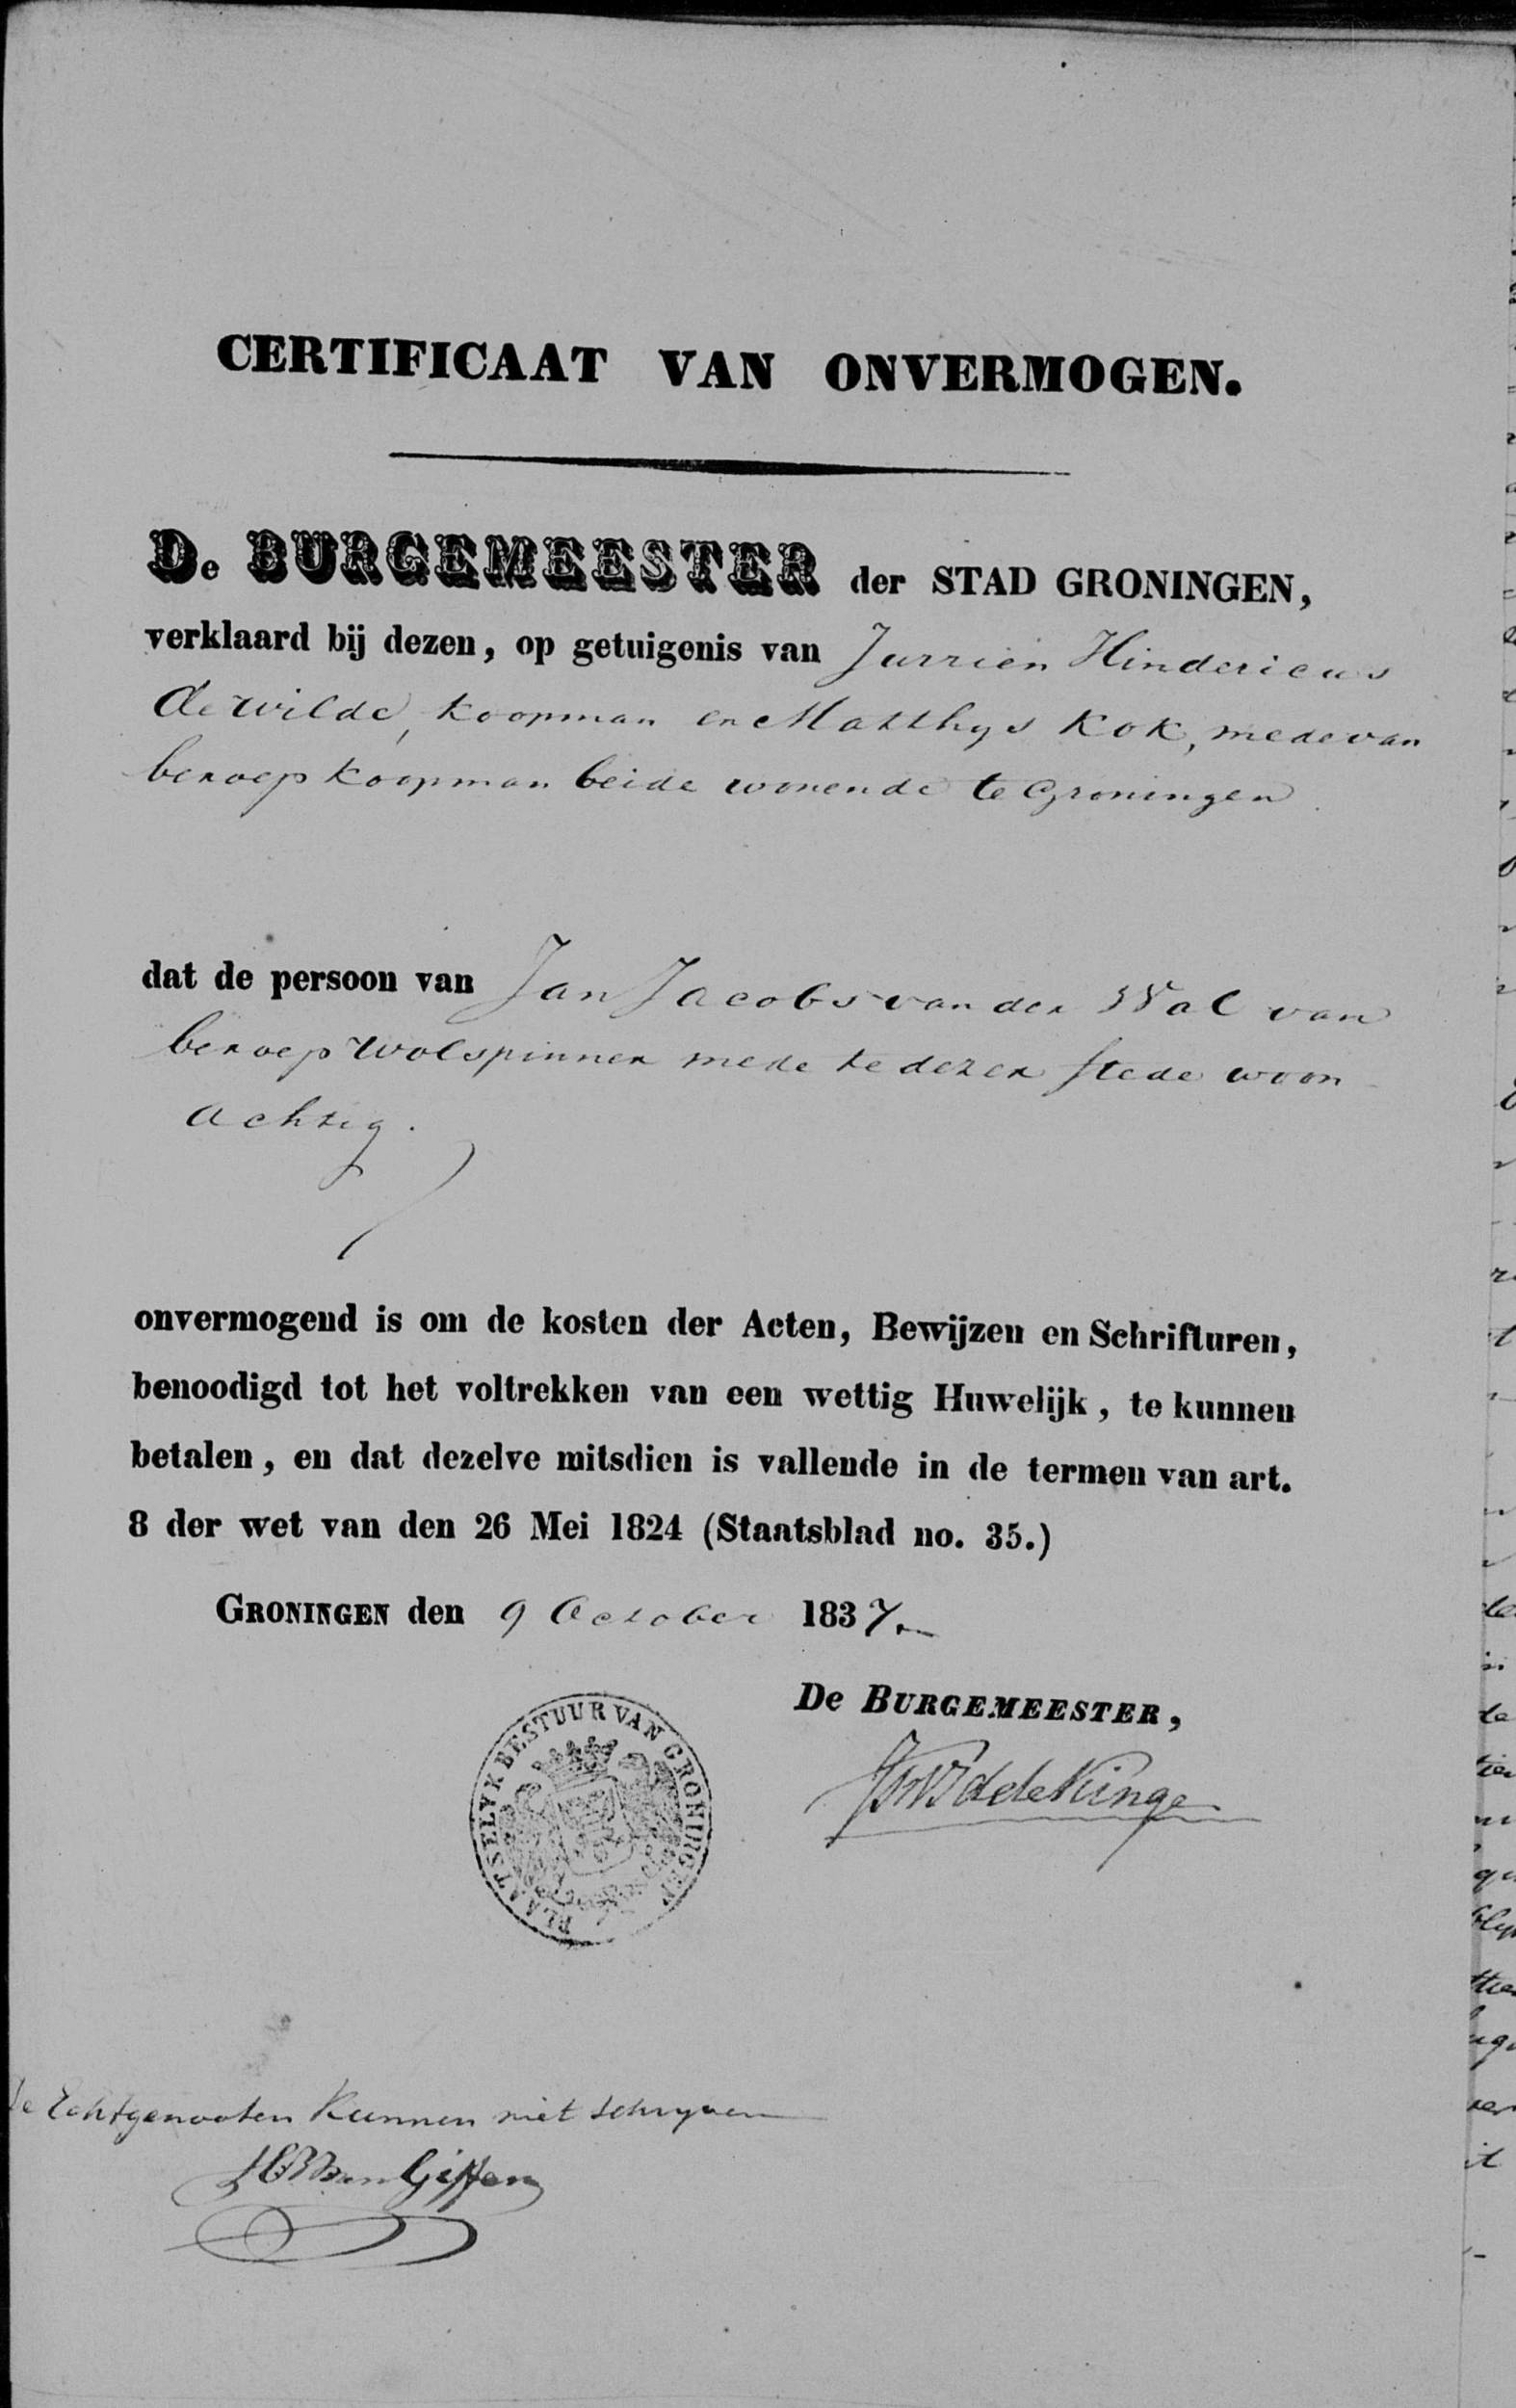 CERTIFICAAT VAN ONVERMOGEN.
De BURGEMEESTER der STAD GRONINGEN,
verklaard bij dezen, op getuigenis van Jurrien Hindericus
de Wilde, koopman en Matthys Kok, mede van
beroep koopman beide wonende te Groningen
dat de persoon van Jan Jacobs van der Wal van
beroep wolspinner mede te dezer stede woon
achtig.
onvermogend is om de kosten der Acten, Bewijzen en Schrifturen,
benoodigd tot het voltrekken van een wettig Huwelijk, te kunnen
betalen, en dat dezelve mitsdien is vallende in de termen van art.
8 der wet van den 26 Mei 1824 (Staatsblad no. 35.)
GRONINGEN den 9 October 1837.
De BURGEMEESTER,
PLAATSELYK BESTUUR VAN GRONINGEN
de Echtgenooten kunnen niet schryven
van Giffen